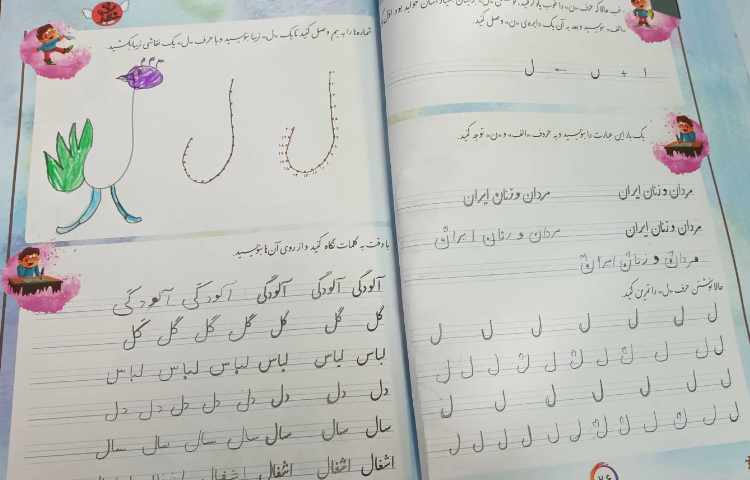 ا + ں ← ل
یک بار این عبارت را بنویسید و به حروف «الف» و «ن» توجه کنید.
مردان و زنان ایران مردان و زنان ایران
مردان و زنان ایران مردان و زنان ایران
مردان و زنان ایران
حالا نوشتن حرف «ل» را تمرین کنید.
ل ل ل ل ل ل ل
ل ل ل ل ل ل ل ل ل ل ل
ل ل ل ل ل ل ل
ل ل ل ل ل ل ل ل ل ل ل ل
۷۶
شماره‌ها را به هم وصل کنید تا یک «ل» زیبا بنویسید و با حرف «ل» یک نقاشی زیبا بکشید.
ل ل ل
با دقت به کلمات نگاه کنید و از روی آن‌ها بنویسید.
آلودگی آلودگی آلودگی آلودگی آلودگی آلودگی
گل گل گل گل گل گل گل گل
لباس لباس لباس لباس لباس لباس
دل دل دل دل دل دل دل دل
سال سال سال سال سال سال سال
اشغال اشغال اشغال اشغال